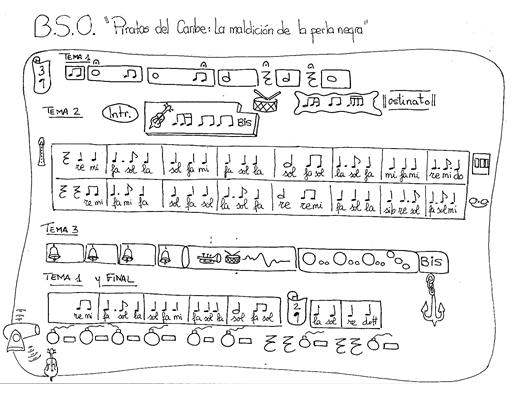 B.S.O. "Piratas del Caribe: La maldición de la perla negra"
TEMA 1
3
ostinato
TEMA 2
Intr.
Bis
re mi fa sol la sol fa mi fa sol la sol fa sol la sol fa mi fa mi re mi do
re mi fa mi fa sol fa sol la sol fa re re mi fa sol la sib re sol fa sol mi
TEMA 3
Bis
TEMA 1 y FINAL
re mi fa sol la sol fa mi fa sol la sol fa sol 2 la sol re do#